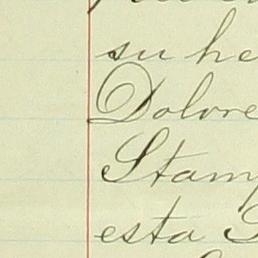 su he
Dolore
Stamp
esta